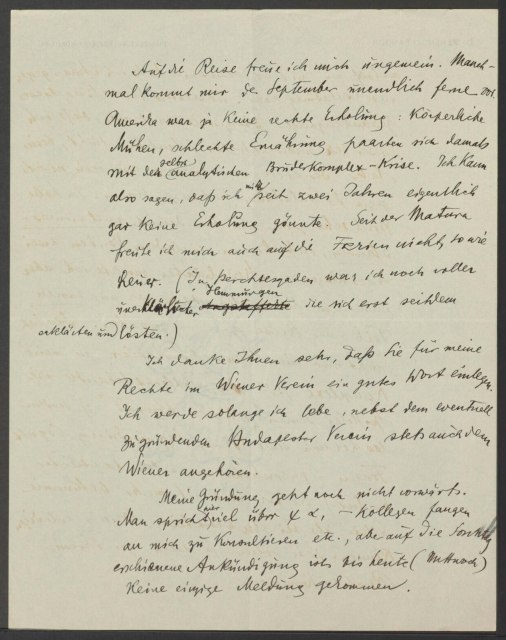 Auf die Reise freue ich mich ungemein. Manch-
mal kommt mir der September unendlich ferne vor
Amerika war ja keine rechte Erholung: Körperliche
Mühen, schlechte Ernährung paarten sich damals
mit der selbst analytischen Bruderkomplex-Krise. Ich kann
also sagen, daß ich mir seit zwei Jahren eigentlich
gar keine Erholung gönnte. Seit der Matura
freute ich mich auch auf die Ferien nicht so wie
heuer. (In Berchtesgaden war ich noch voller
unerklärter Hemmungen die sich erst seitdem
erklärten und lösten.)
Ich danke Ihnen sehr, daß Sie für meine
Rechte im Wiener Verein ein gutes Wort einlegen.
Ich werde solange ich lebe, nebst dem eventuell
zu gründenden Budapester Verein stets auch dem
Wiener angehören.
Meine Gründung geht noch nicht vorwärts.
Man spricht viel über ψ α, – Kollegen fangen
an mich zu Konsultieren etc., aber auf die Sonntag
erschienene Ankündigung ist bis heute (Mittwoch)
keine einzige Meldung gekommen.